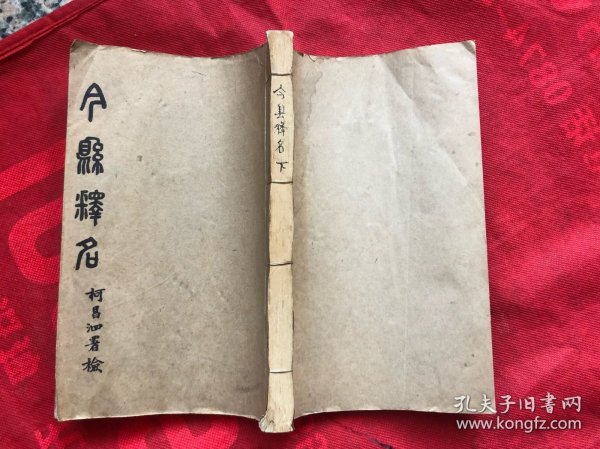 今縣釋名
柯昌泗署檢
今县释名下
孔夫子旧书网
www.kongfz.com